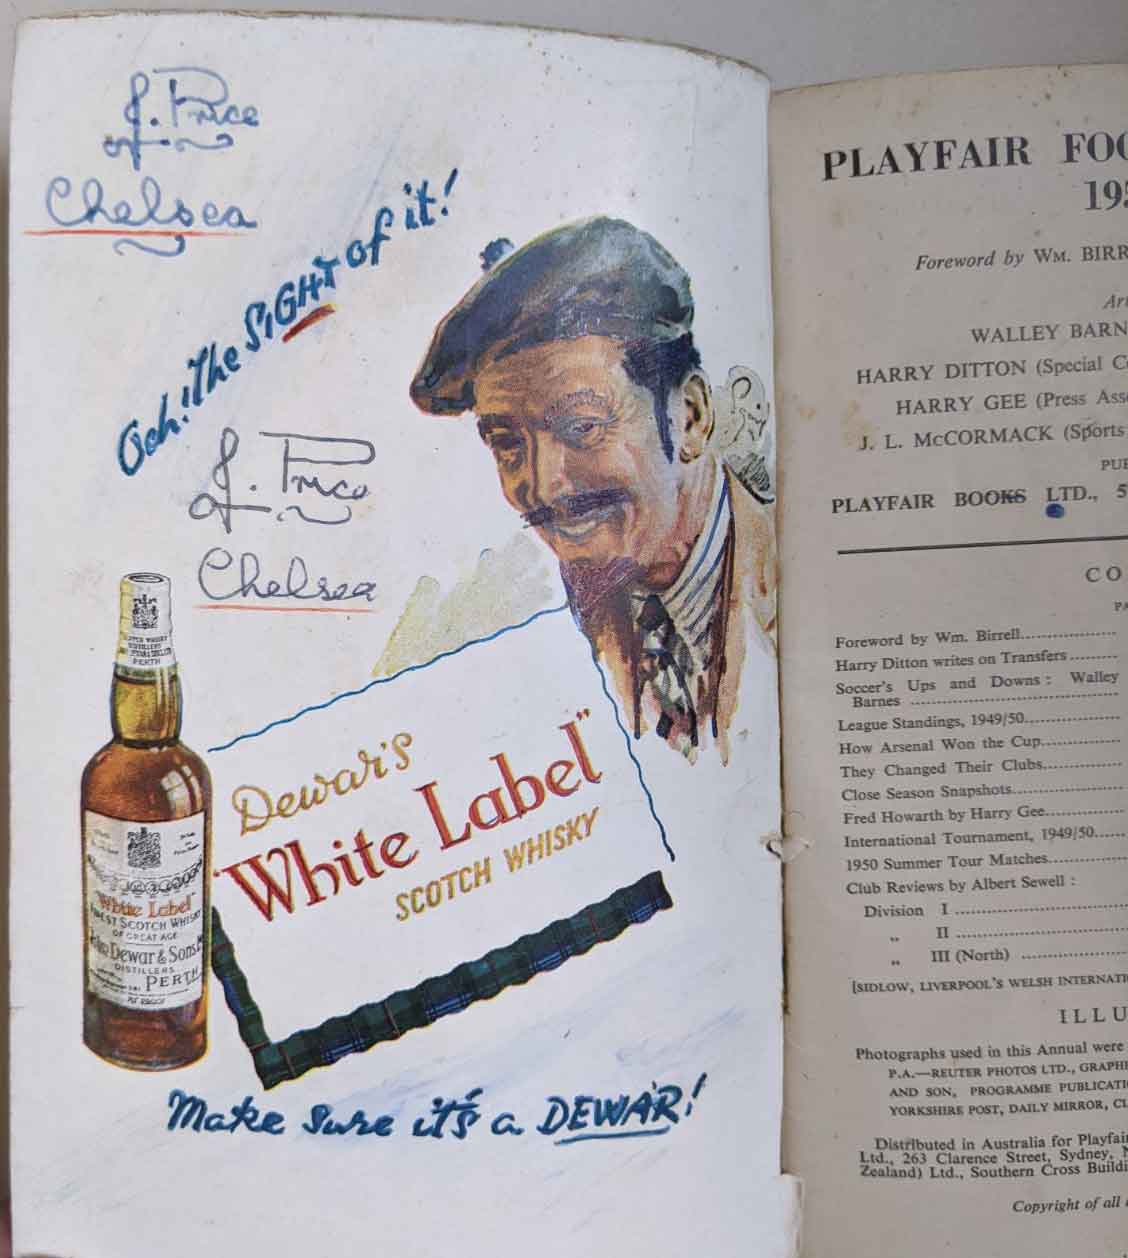 J. Price
of
Chelsea
Och! The SIGHT of it!
J. Price
of
Chelsea
SCOTCH WHISKY
DISTILLERS
PERTH
Dewar's
"White Label"
SCOTCH WHISKY
"White Label"
FINEST SCOTCH WHISKY
OF GREAT AGE
John Dewar & Sons
DISTILLERS
PERTH
Make sure it's a DEWAR!
PLAYFAIR FOO
195
Foreword by WM. BIRR
Art
WALLEY BARN
HARRY DITTON (Special Co
HARRY GEE (Press Asso
J. L. McCORMACK (Sports
PUB
PLAYFAIR BOOKS LTD., 5
CO
PA
Foreword by Wm. Birrell
Harry Ditton writes on Transfers
Soccer's Ups and Downs : Walley
Barnes
League Standings, 1949/50
How Arsenal Won the Cup
They Changed Their Clubs
Close Season Snapshots
Fred Howarth by Harry Gee
International Tournament, 1949/50
1950 Summer Tour Matches
Club Reviews by Albert Sewell :
Division I
„ II
„ III (North)
[SIDLOW, LIVERPOOL'S WELSH INTERNATI
ILLU
Photographs used in this Annual were
P.A.—REUTER PHOTOS LTD., GRAPHI
AND SON, PROGRAMME PUBLICATI
YORKSHIRE POST, DAILY MIRROR, CL
Distributed in Australia for Playfair
Ltd., 263 Clarence Street, Sydney, N
Zealand) Ltd., Southern Cross Buildi
Copyright of all